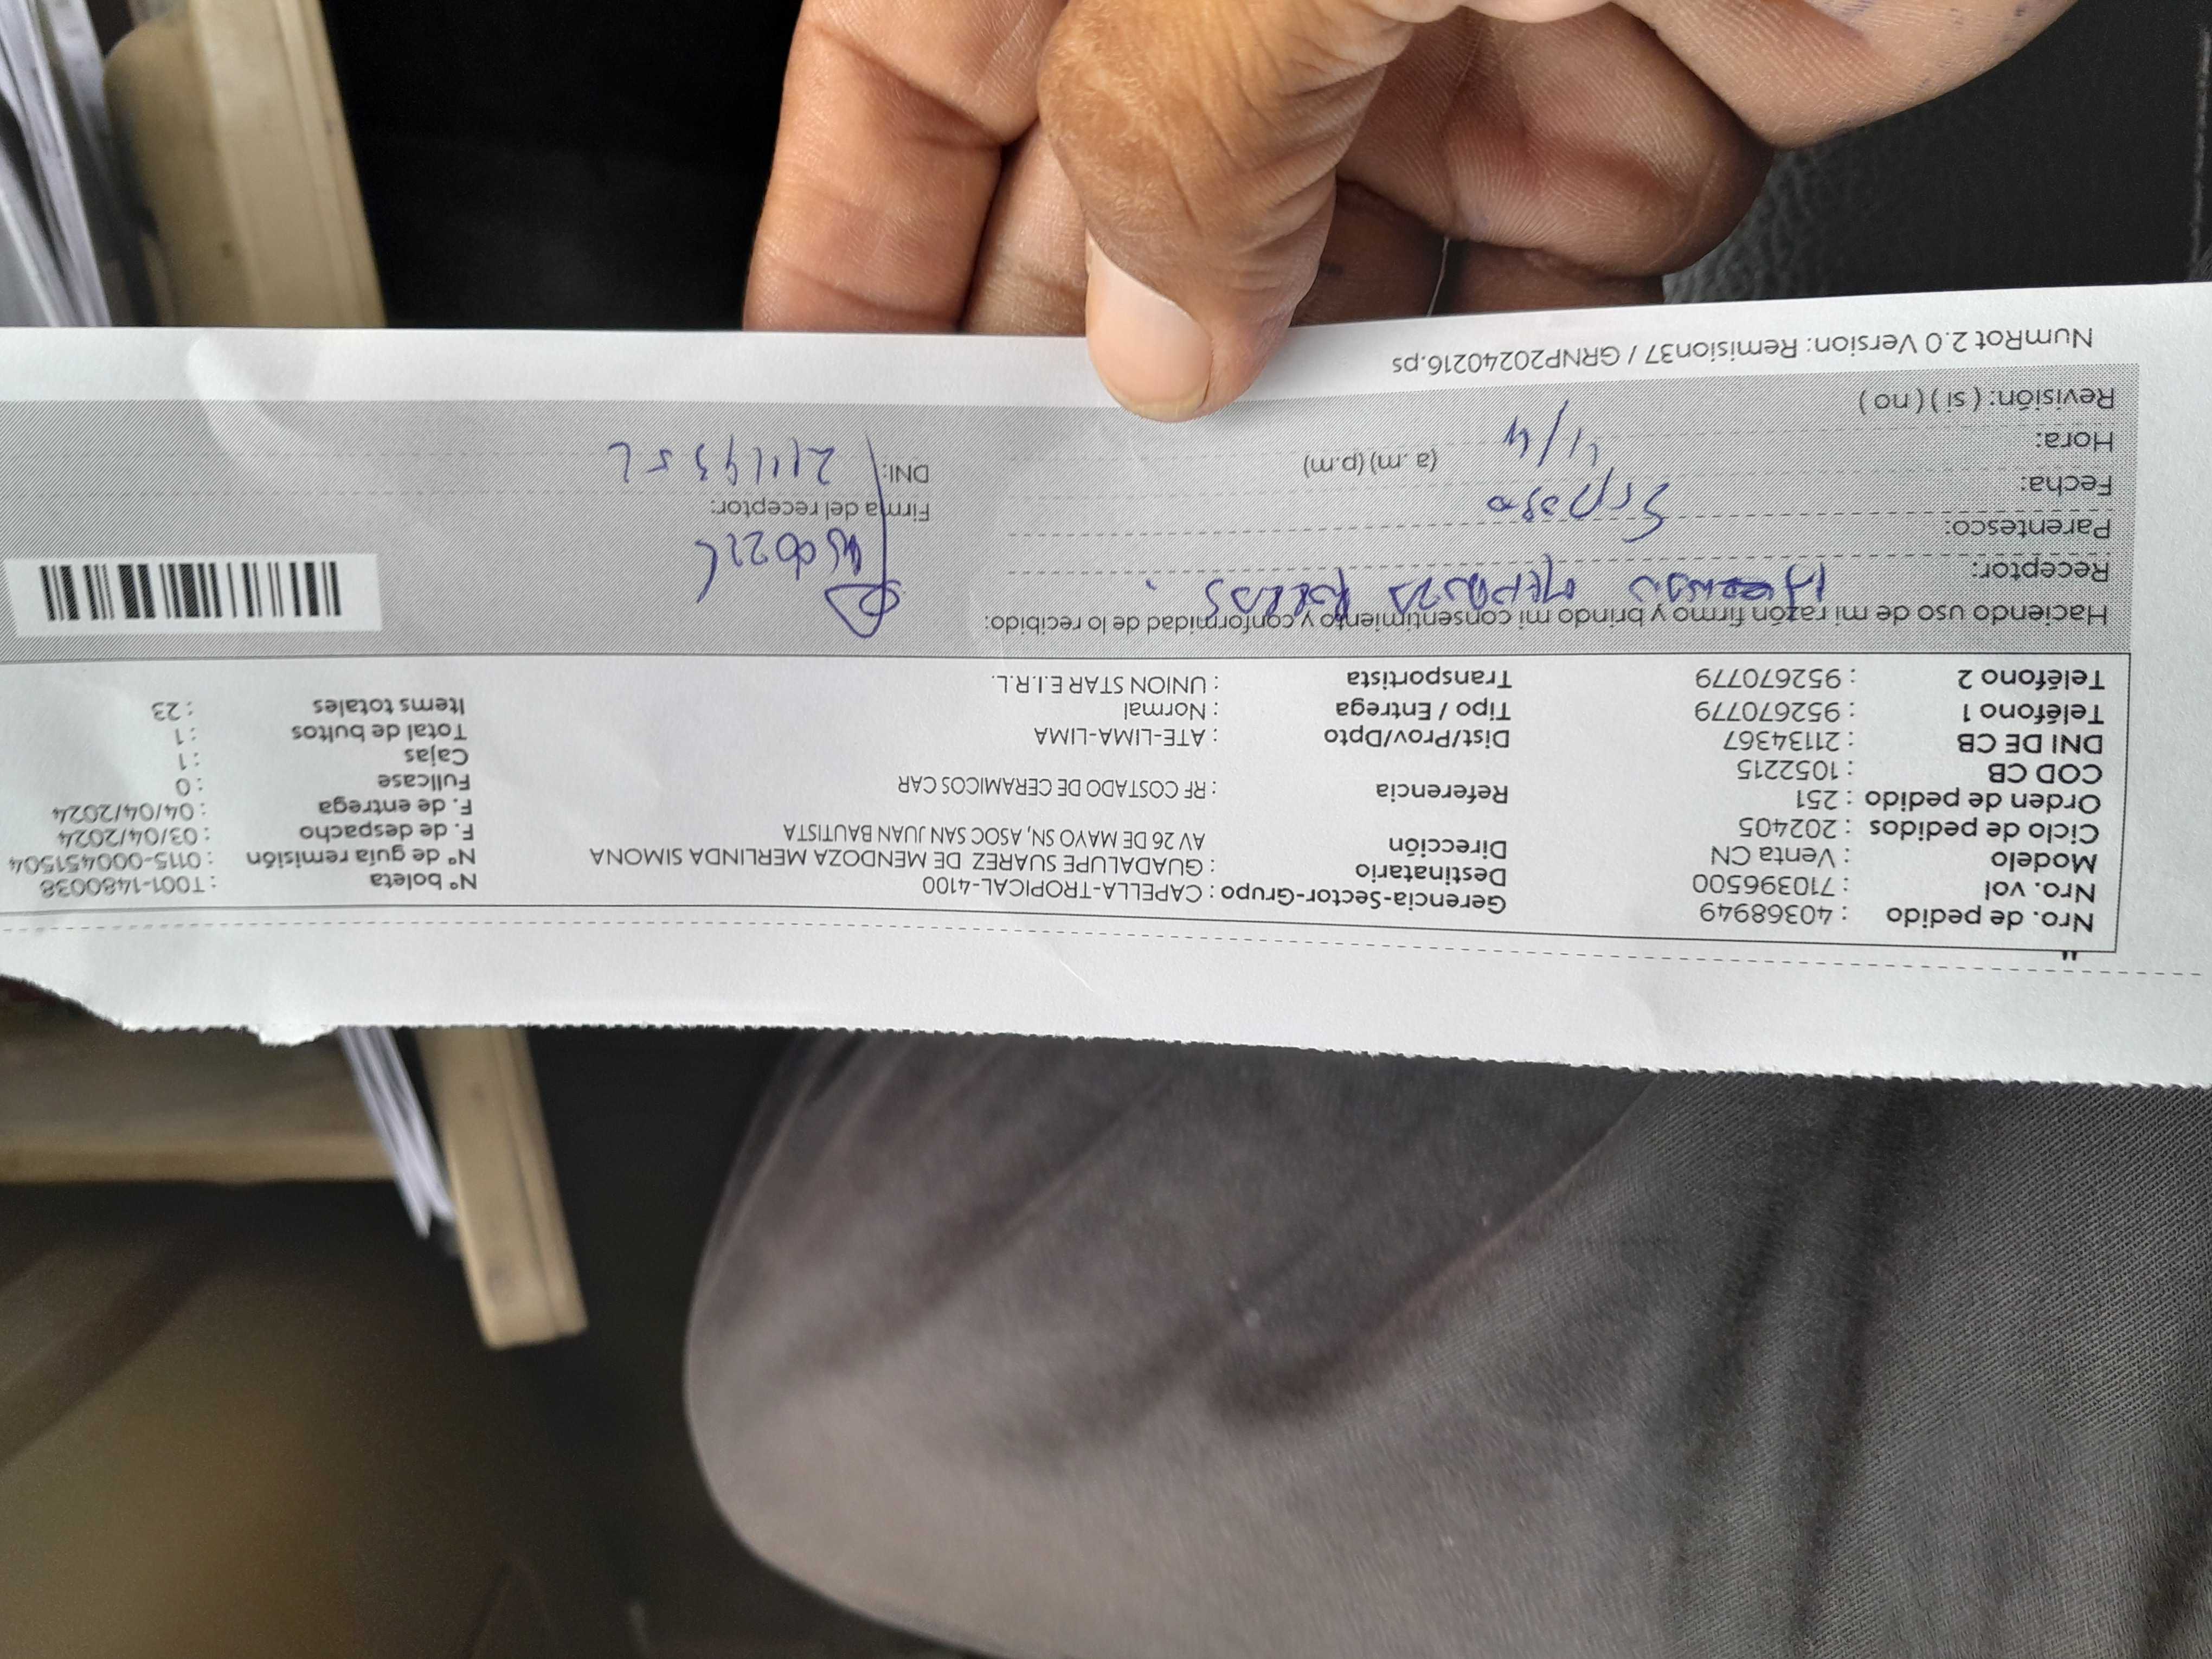 Nro. de pedido : 40368949
Nro. vol : 710396500
Modelo : Venta CN
Ciclo de pedidos : 202405
Orden de pedido : 251
COD CB : 1052215
DNI DE CB : 21134367
Teléfono 1 : 952670779
Teléfono 2 : 952670779
Gerencia-Sector-Grupo : CAPELLA-TROPICAL-4100
Destinatario : GUADALUPE SUAREZ DE MENDOZA MERLINDA SIMONA
Dirección AV 26 DE MAYO SN, ASOC SAN JUAN BAUTISTA
Referencia : RF COSTADO DE CERAMICOS CAR
Dist/Prov/Dpto : ATE-LIMA-LIMA
Tipo / Entrega : Normal
Transportista : UNION STAR E.I.R.L.
N° boleta : T001-1480038
N° de guía remisión : 0115-000451504
F. de despacho : 03/04/2024
F. de entrega : 04/04/2024
Fullcase : 0
Cajas : 1
Total de bultos : 1
Items totales : 23
Haciendo uso de mi razón firmo y brindo mi consentimiento y conformidad de lo recibido:
Receptor: Mendoza
Parentesco: Esposo
Fecha: 4/4
Hora: (a.m) (p.m)
Revisión: ( si ) ( no )
Firma del receptor:
DNI:
NumRot 2.0 Version: Remision37 / GRNP20240216.ps